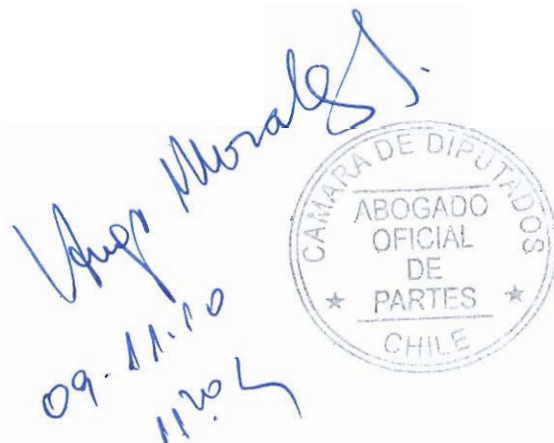 Hugo Morales J.
09.11.10
11²⁰ h
CÁMARA DE DIPUTADOS
ABOGADO
OFICIAL
DE
PARTES
CHILE